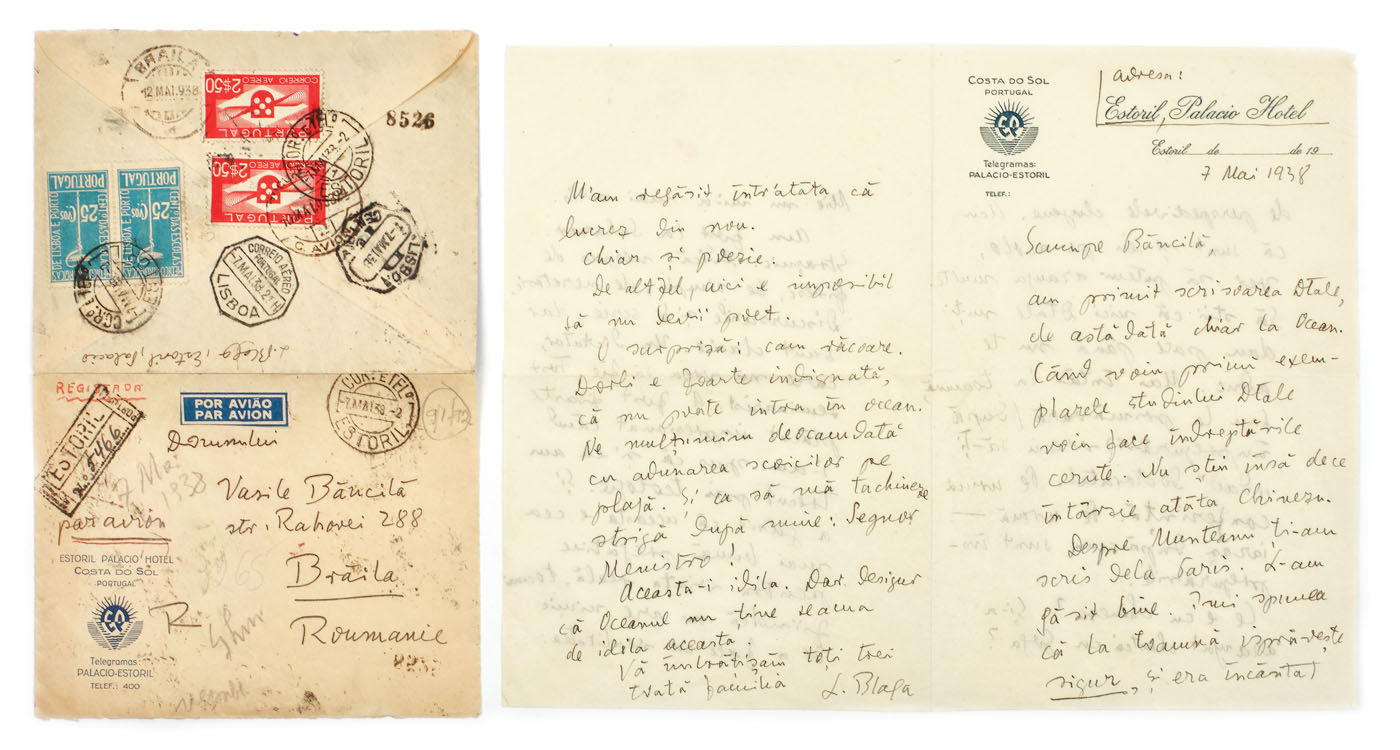 BRAILA
12 MAI. 938
CORREIO AEREO
2$50
PORTUGAL
8526
CORREIO AEREO
2$50
PORTUGAL
C. AVION
25 Cvos
PORTUGAL
25 Cvos
PORTUGAL
CORREIO AÉREO
PORTUGAL
-7.MAI.38.21H
LISBOA
L. Blaga, Estoril, Palacio
REGISTRADA
POR AVIÃO
PAR AVION
-7.MAI.38.-2
ESTORIL
ESTORIL
No 5466
Domnului
7 Mai
1938
Vasile Băncilă
str. Rahovei 288
par avion
Brăila
Roumanie
R
ESTORIL PALACIO HOTEL
COSTA DO SOL
PORTUGAL
EP
Telegramas:
PALACIO-ESTORIL
TELEF.: 400
M'am regăsit într'atâta că
lucrez din nou.
chiar și poezie.
De altfel, aici e imposibil
să nu devii poet.
O surpriză: cam răcoare.
Dorli e foarte indignată,
că nu poate intra în ocean.
Ne mulțumim deocamdată
cu adunarea scoicilor pe
plajă. Și ca să mă tachineze
strigă după mine: Segnor
Ministro!
Aceasta-i idila. Dar desigur
că Oceanul nu ține seama
de idila aceasta.
Vă îmbrățișăm toți trei
toată familia
L. Blaga
COSTA DO SOL
PORTUGAL
EP
Telegramas:
PALACIO-ESTORIL
TELEF.:
adresa:
Estoril, Palacio Hotel
Estoril de de 19
7 Mai 1938
Scumpe Băncilă,
am primit scrisoarea Dtale,
de astădată chiar la Ocean.
Când voiu primi exem-
plarele studiului Dtale
voiu face îndreptările
cerute. Nu știu însă dece
întârzie atâta Chinezu.
Despre Munteanu ți-am
scris dela Paris. L-am
găsit bine. Îmi spunea
că la toamnă isprăvește
sigur, și era încântat